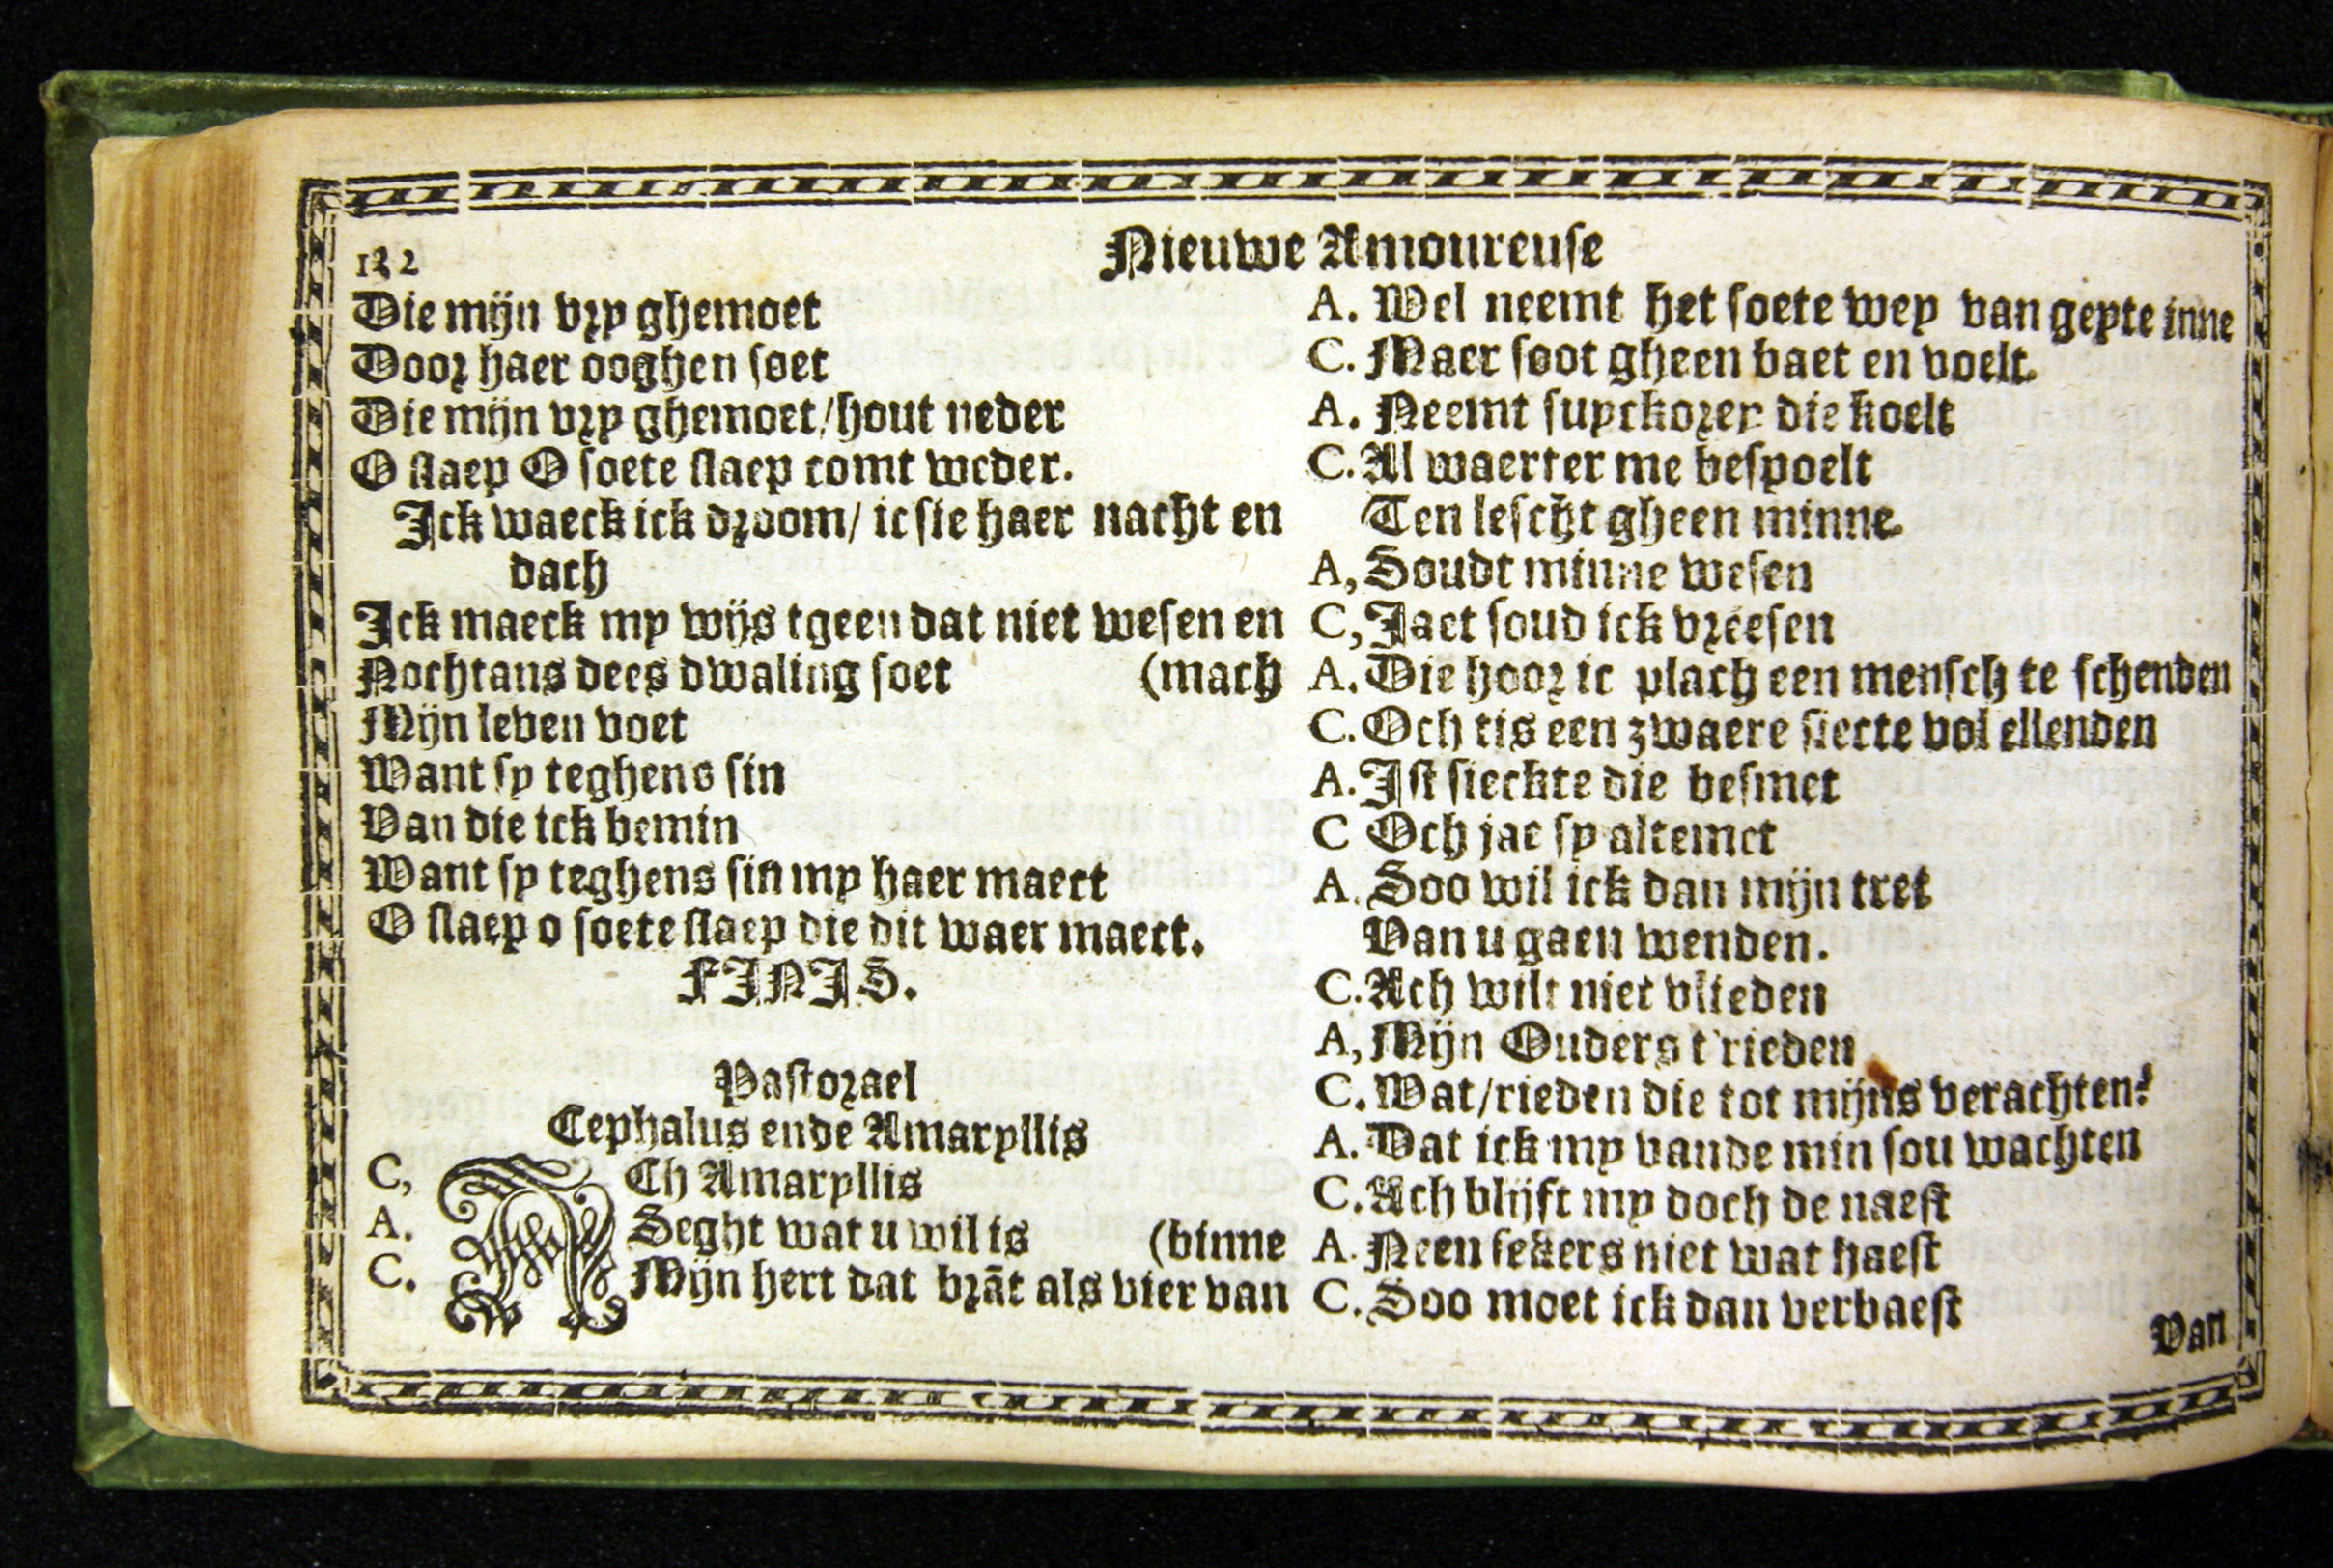 122
Nieuwe Amoureuse
Die mijn vry ghemoet
Door haer ooghen soet
Die mijn vry ghemoet/hout neder
O slaep O soete slaep comt weder.
Ick waeck ick droom/ ic sie haer nacht en
dach
Ick maeck my wijs tgeen dat niet wesen en
Nochtans dees dwaling soet (mach
Mijn leven voet
Want sy teghens sin
Van die ick bemin
Want sy teghens sin my haer maect
O slaep o soete slaep die dit waer maect.
FINIS.
Pastorael
Cephalus ende Amaryllis
C, ACh Amaryllis
A. Seght wat u wil is (binne
C. Mijn hert dat brāt als vier van
A. Wel neemt het soete wey van geyte inne
C. Maer soot gheen baet en voelt.
A. Neemt suyckorey die koelt
C. Al waerter me bespoelt
Ten lescht gheen minne.
A, Soudt minne wesen
C, Jaet soud ick vreesen
A. Die hoor ic plach een mensch te schenden
C. Och tis een zwaere siecte vol ellenden
A. Ist sieckte die besmet
C Och jae sy altemet
A. Soo wil ick dan mijn tret
Van u gaen wenden.
C. Ach wilt niet vlieden
A, Mijn Ouders t'rieden
C. Wat/rieden die tot mijns verachten?
A. Dat ick my vande min sou wachten
C. Ach blijft my doch de naest
A. Neen sekers niet wat haest
C. Soo moet ick dan verbaest
Van